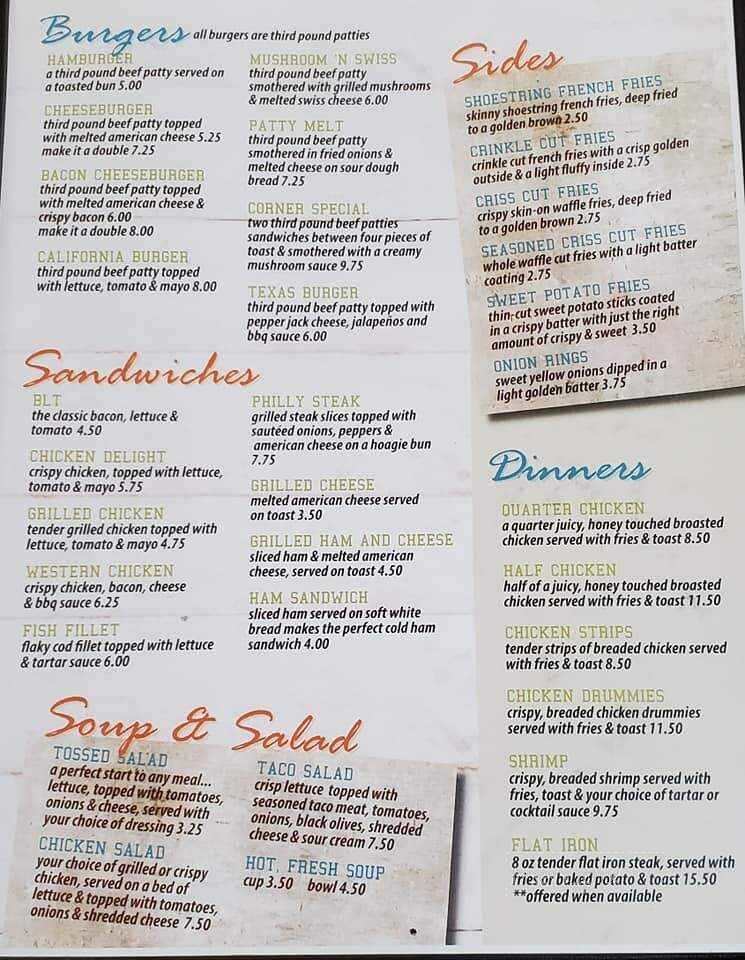 Burgers all burgers are third pound patties
HAMBURGER
a third pound beef patty served on
a toasted bun 5.00
CHEESEBURGER
third pound beef patty topped
with melted american cheese 5.25
make it a double 7.25
BACON CHEESEBURGER
third pound beef patty topped
with melted american cheese &
crispy bacon 6.00
make it a double 8.00
CALIFORNIA BURGER
third pound beef patty topped
with lettuce, tomato & mayo 8.00
MUSHROOM 'N SWISS
third pound beef patty
smothered with grilled mushrooms
& melted swiss cheese 6.00
PATTY MELT
third pound beef patty
smothered in fried onions &
melted cheese on sour dough
bread 7.25
CORNER SPECIAL
two third pound beef patties
sandwiches between four pieces of
toast & smothered with a creamy
mushroom sauce 9.75
TEXAS BURGER
third pound beef patty topped with
pepper jack cheese, jalapeños and
bbq sauce 6.00
Sandwiches
BLT
the classic bacon, lettuce &
tomato 4.50
CHICKEN DELIGHT
crispy chicken, topped with lettuce,
tomato & mayo 5.75
GRILLED CHICKEN
tender grilled chicken topped with
lettuce, tomato & mayo 4.75
WESTERN CHICKEN
crispy chicken, bacon, cheese
& bbq sauce 6.25
FISH FILLET
flaky cod fillet topped with lettuce
& tartar sauce 6.00
PHILLY STEAK
grilled steak slices topped with
sautéed onions, peppers &
american cheese on a hoagie bun
7.75
GRILLED CHEESE
melted american cheese served
on toast 3.50
GRILLED HAM AND CHEESE
sliced ham & melted american
cheese, served on toast 4.50
HAM SANDWICH
sliced ham served on soft white
bread makes the perfect cold ham
sandwich 4.00
Soup & Salad
TOSSED SALAD
a perfect start to any meal...
lettuce, topped with tomatoes,
onions & cheese, served with
your choice of dressing 3.25
CHICKEN SALAD
your choice of grilled or crispy
chicken, served on a bed of
lettuce & topped with tomatoes,
onions & shredded cheese 7.50
TACO SALAD
crisp lettuce topped with
seasoned taco meat, tomatoes,
onions, black olives, shredded
cheese & sour cream 7.50
HOT, FRESH SOUP
cup 3.50 bowl 4.50
Sides
SHOESTRING FRENCH FRIES
skinny shoestring french fries, deep fried
to a golden brown 2.50
CRINKLE CUT FRIES
crinkle cut french fries with a crisp golden
outside & a light fluffy inside 2.75
CRISS CUT FRIES
crispy skin-on waffle fries, deep fried
to a golden brown 2.75
SEASONED CRISS CUT FRIES
whole waffle cut fries with a light batter
coating 2.75
SWEET POTATO FRIES
thin-cut sweet potato sticks coated
in a crispy batter with just the right
amount of crispy & sweet 3.50
ONION RINGS
sweet yellow onions dipped in a
light golden batter 3.75
Dinners
QUARTER CHICKEN
a quarter juicy, honey touched broasted
chicken served with fries & toast 8.50
HALF CHICKEN
half of a juicy, honey touched broasted
chicken served with fries & toast 11.50
CHICKEN STRIPS
tender strips of breaded chicken served
with fries & toast 8.50
CHICKEN DRUMMIES
crispy, breaded chicken drummies
served with fries & toast 11.50
SHRIMP
crispy, breaded shrimp served with
fries, toast & your choice of tartar or
cocktail sauce 9.75
FLAT IRON
8 oz tender flat iron steak, served with
fries or baked potato & toast 15.50
**offered when available